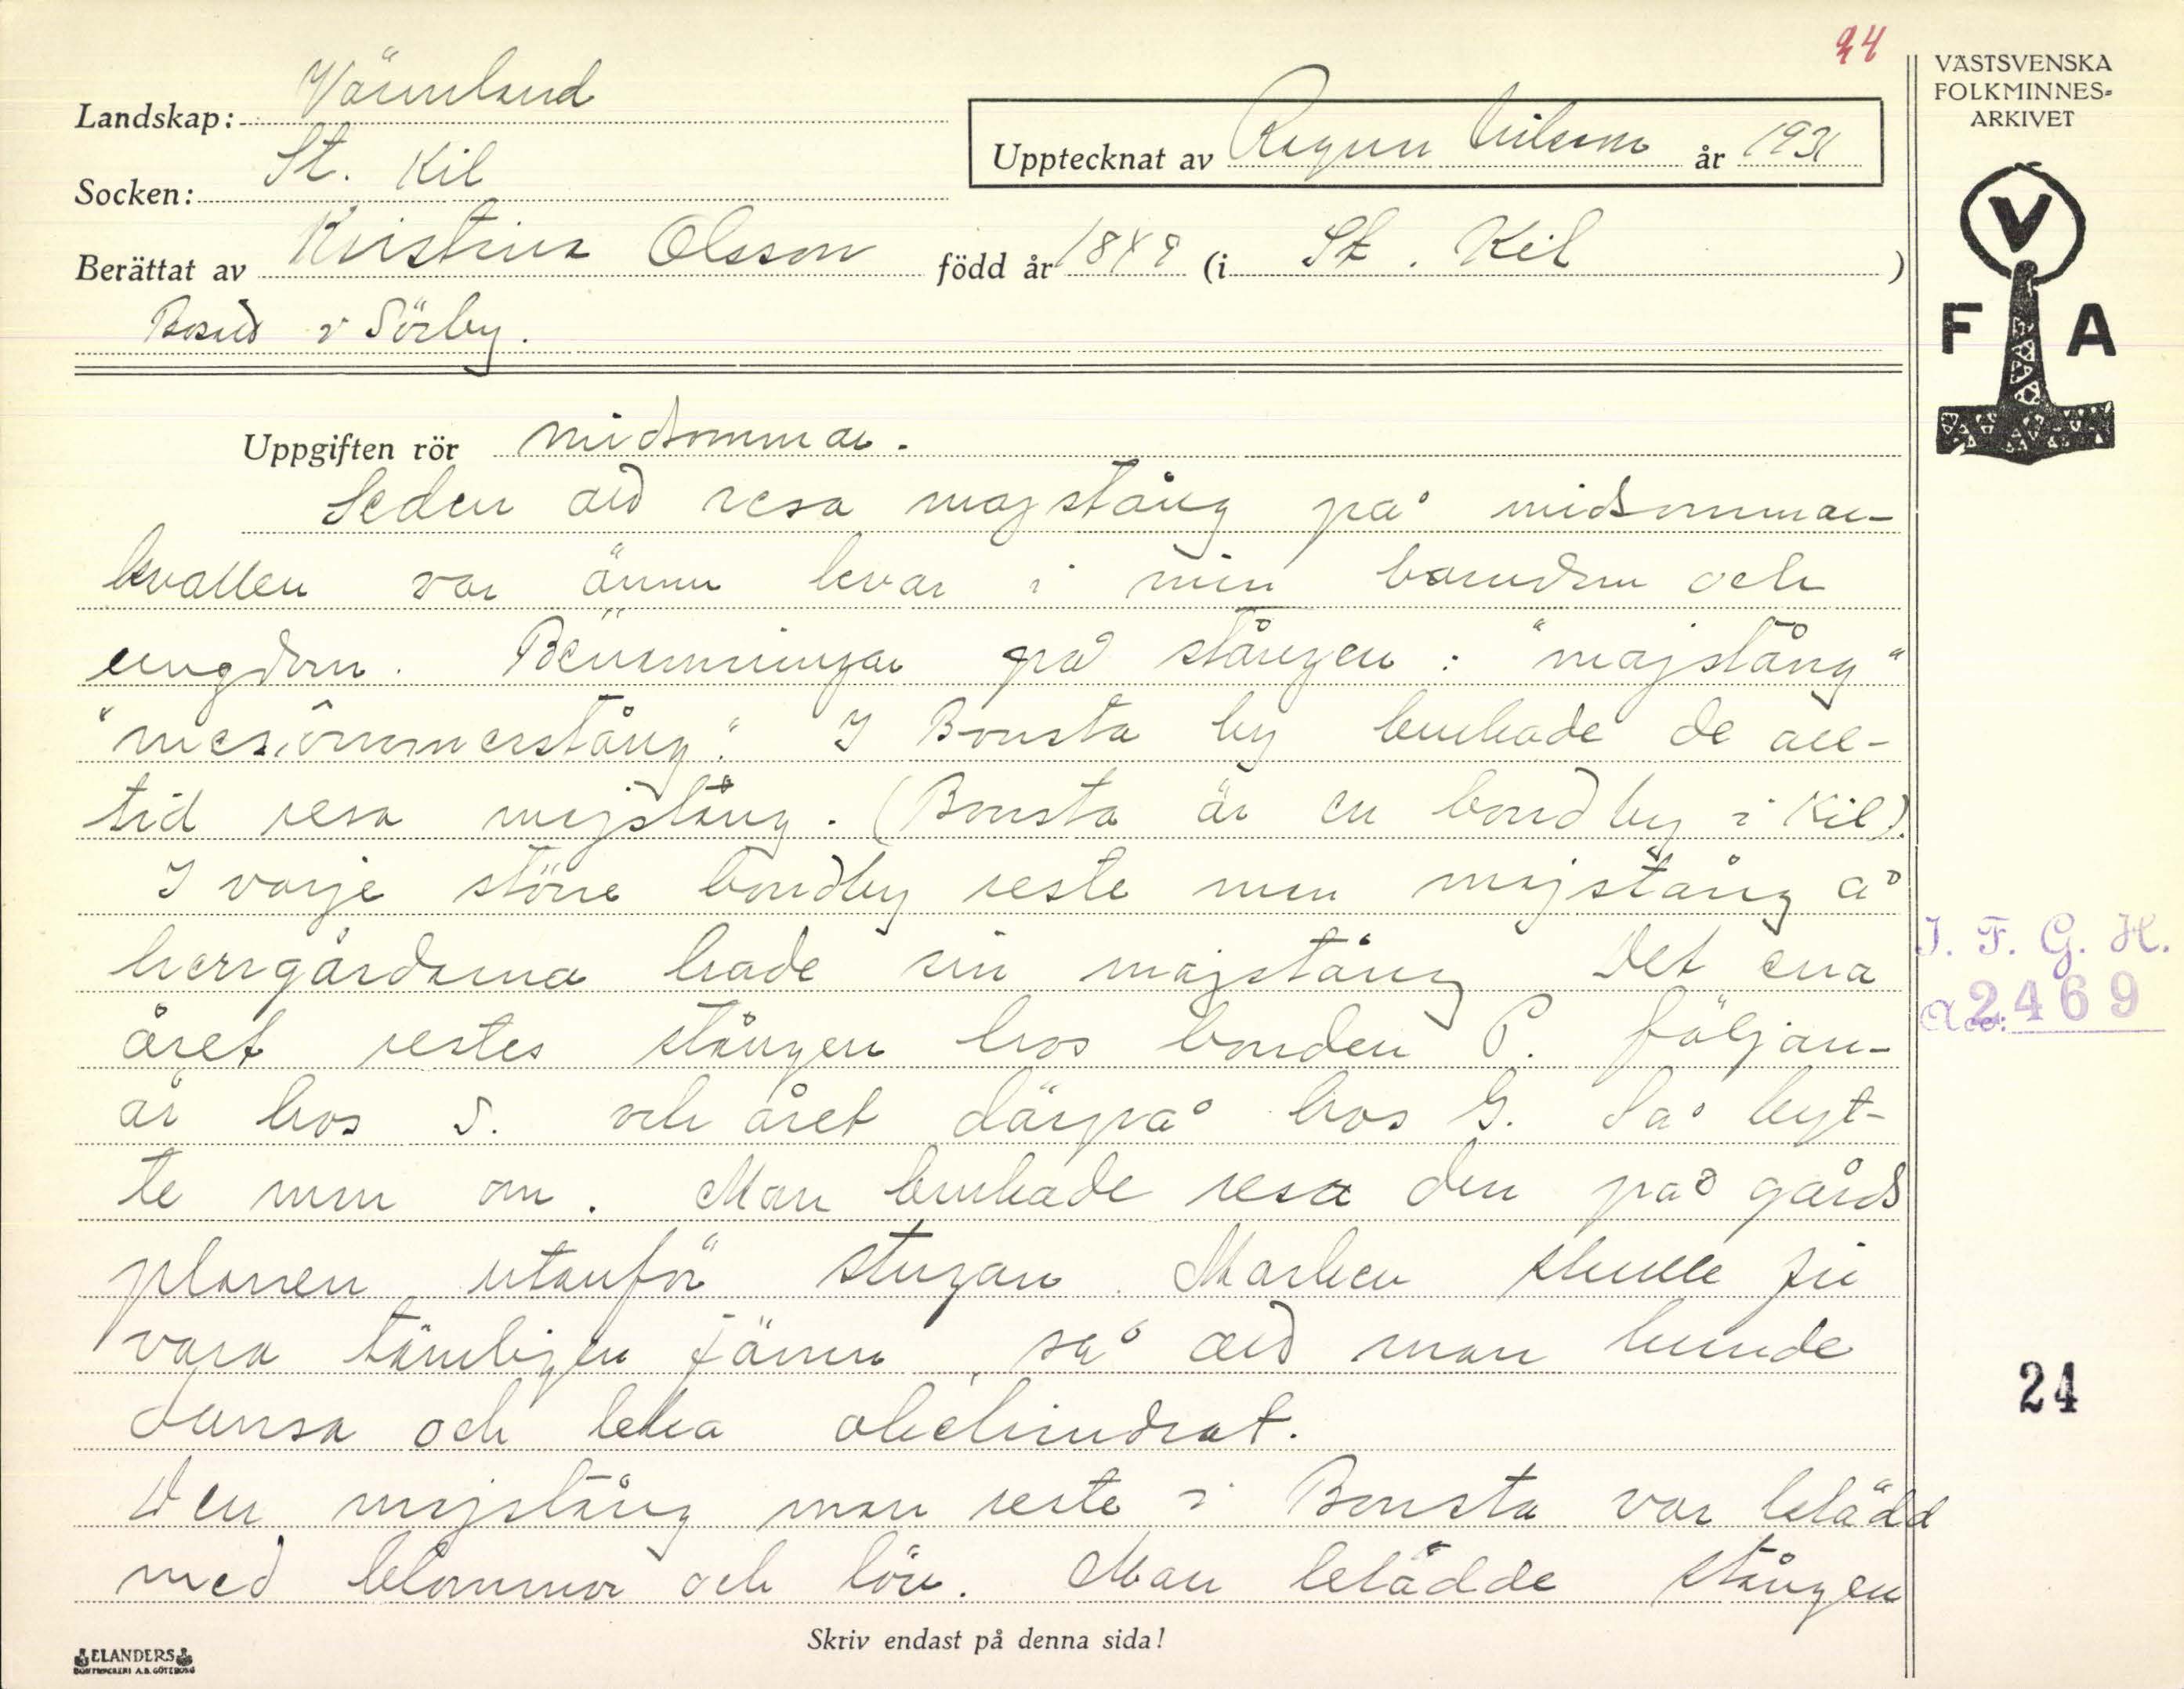 24
VÄSTSVENSKA
FOLKMINNES-
ARKIVET
Landskap: Värmland
Socken: St. Kil
Upptecknat av Ragnar Nilsson år 1931
Berättat av Kristina Olsson född år 1849 (i St. Kil )
Bosatt i Sörby.
V
F A
Uppgiften rör midsommar.
Seden att resa majstång på midsommar-
kvällen var ännu kvar i min barndom och
ungdom. Benämningar på stången: "majstång"
"mesômmerstång". I Bonsta by brukade de all-
tid resa majstång. (Bonsta är en bondby i Kil).
I varje större bondby reste man majstång å
herrgårdarna hade sin majstång Det ena
året restes stången hos bonden P. följan-
år hos S. och året därpå hos G. Så byt-
te man om. Man brukade resa den på gårds
planen utanför stugan. Marken skulle ju
vara tämligen jämn, så att man kunde
dansa och leka obehindrat.
Den majstång man reste i Bonsta var klädd
med blommor och löv. Man klädde stången
I. F. G. H.
Acc: 2469
24
Skriv endast på denna sida!
ELANDERS
BOKTRYCKERI A.B. GÖTEBORG